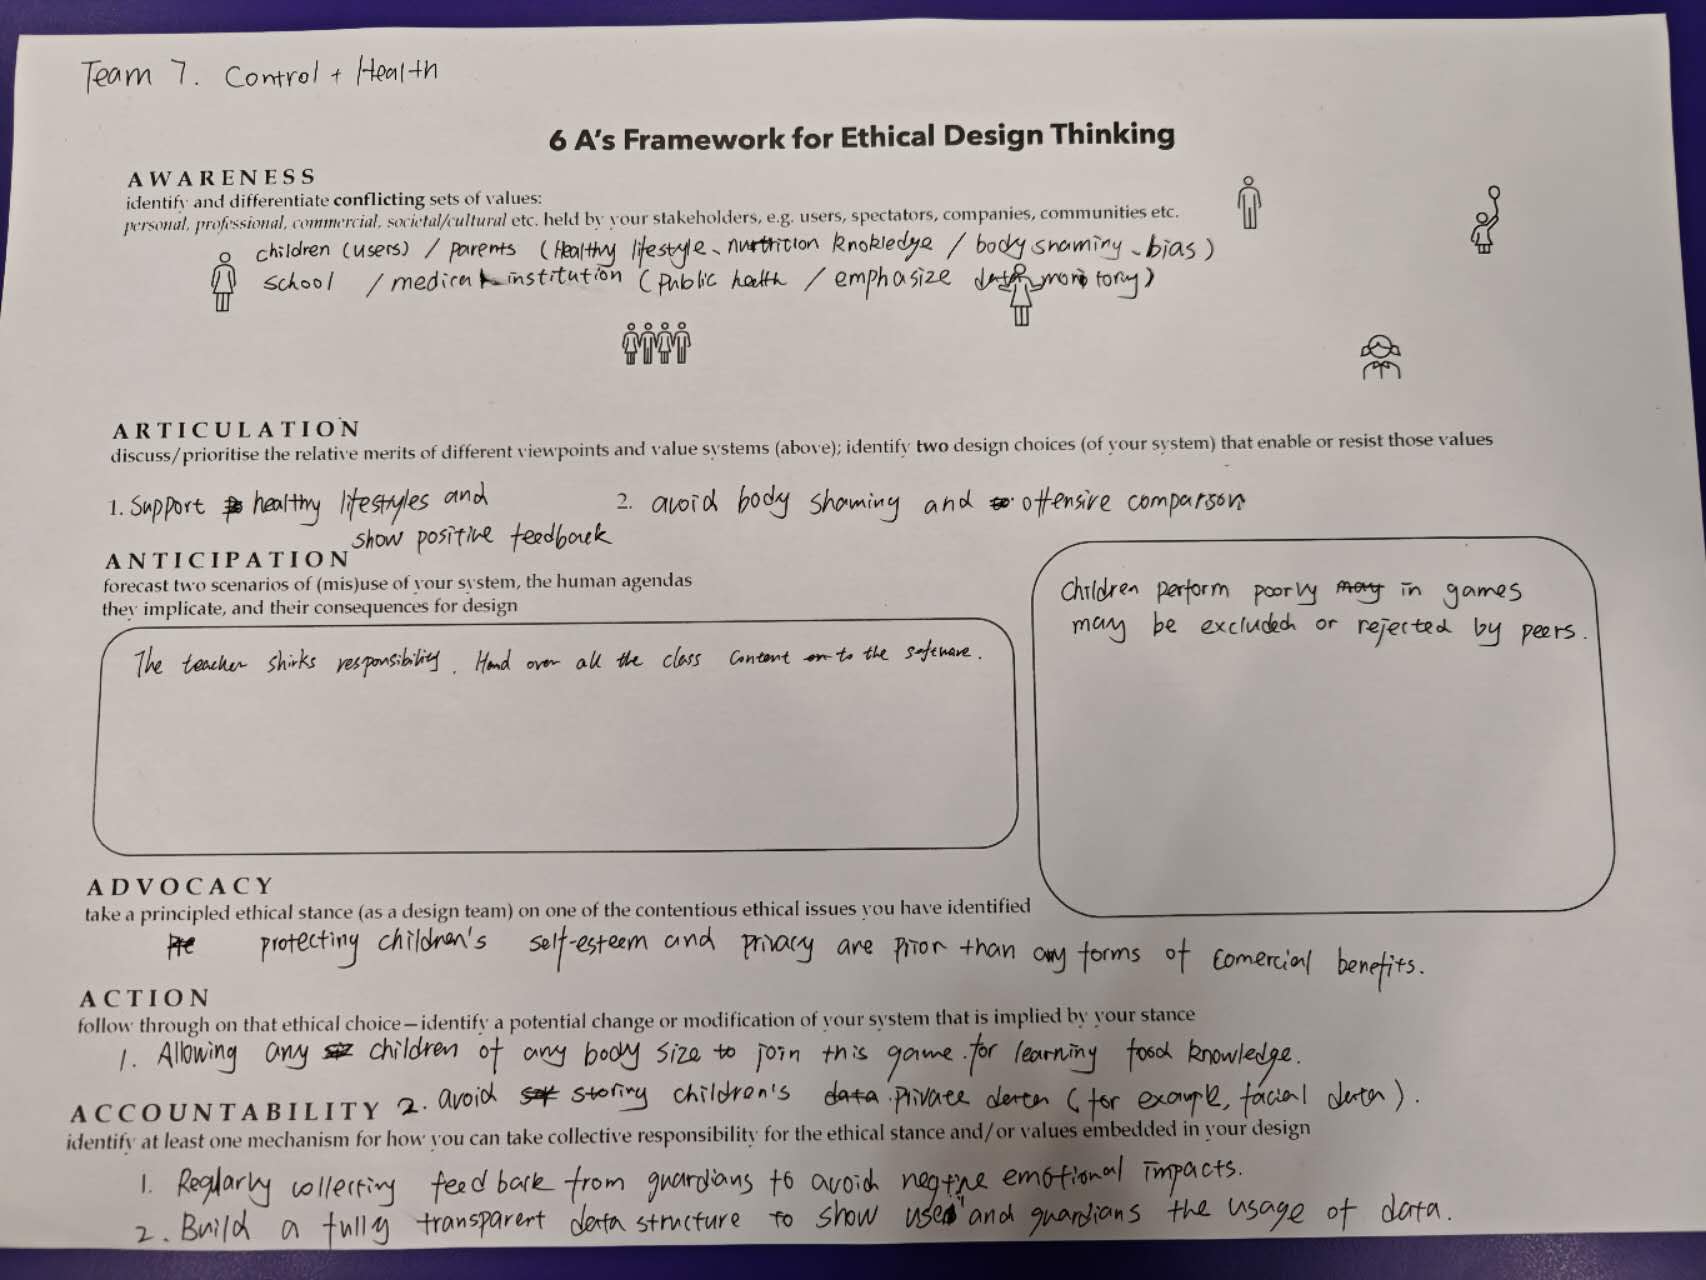 Team 7. Control + Health
6 A's Framework for Ethical Design Thinking
AWARENESS
identify and differentiate conflicting sets of values:
personal, professional, commercial, societal/cultural etc. held by your stakeholders, e.g. users, spectators, companies, communities etc.
children (users) / parents (Healthy lifestyle、nutrition knokledge / body snaming、bias)
school / medical institution (public health / emphasize data monitoring)
ARTICULATION
discuss/prioritise the relative merits of different viewpoints and value systems (above); identify two design choices (of your system) that enable or resist those values
1. Support healthy lifestyles and
show positive feedback
2. avoid body shaming and offensive comparison
ANTICIPATION
forecast two scenarios of (mis)use of your system, the human agendas
they implicate, and their consequences for design
The teacher shirks responsibility. Hand over all the class content to the software.
Children perform poorly may in games
may be excluded or rejected by peers.
ADVOCACY
take a principled ethical stance (as a design team) on one of the contentious ethical issues you have identified
protecting children's self-esteem and privacy are prior than any forms of comercial benefits.
ACTION
follow through on that ethical choice—identify a potential change or modification of your system that is implied by your stance
1. Allowing any children of any body size to join this game for learning food knowledge.
2. avoid storing children's data private data (for example, facial data).
ACCOUNTABILITY
identify at least one mechanism for how you can take collective responsibility for the ethical stance and/or values embedded in your design
1. Reglarly collecting feedback from guardians to avoid negtive emotional impacts.
2. Build a fully transparent data structure to show user and guardians the usage of data.